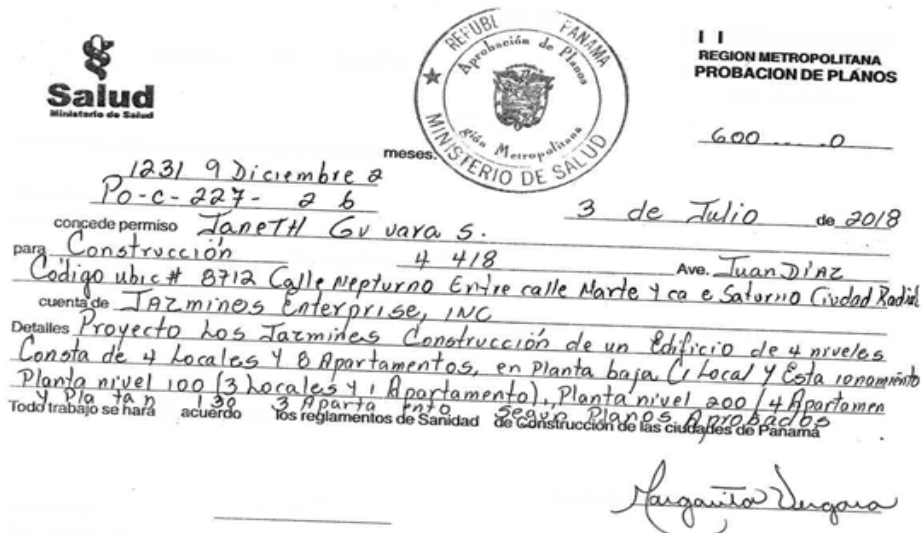 Salud
Ministerio de Salud
REPUBL PANAMA
Aprobación de Planos
gión Metropolitana
MINISTERIO DE SALUD
I I
REGION METROPOLITANA
PROBACION DE PLANOS
600 .... 0
meses.
1231 9 Diciembre 2
Po-c-227- 2 6
3 de Julio de 2018
concede permiso JaneTH Gu vara S.
para Construcción 4 418 Ave. Juan DíAZ
Código ubic # 8712 Calle Nepturno Entre calle Marte y ca e Saturno Ciudad Radial
cuenta de JAZmines Enterprise, INC
Detalles Proyecto Los Jazmines Construcción de un Edificio de 4 niveles
Consta de 4 Locales Y 8 Apartamentos, en Planta baja (1 Local y Esta ionamiento
Planta nivel 100 (3 Locales y 1 Apartamento), Planta nivel 200 (4 Apartamen
y Pla ta n 130 3 Aparta ento Segun Planos Aprobados
Todo trabajo se hará acuerdo los reglamentos de Sanidad de Construcción de las ciudades de Panamá
Margarita Vergara